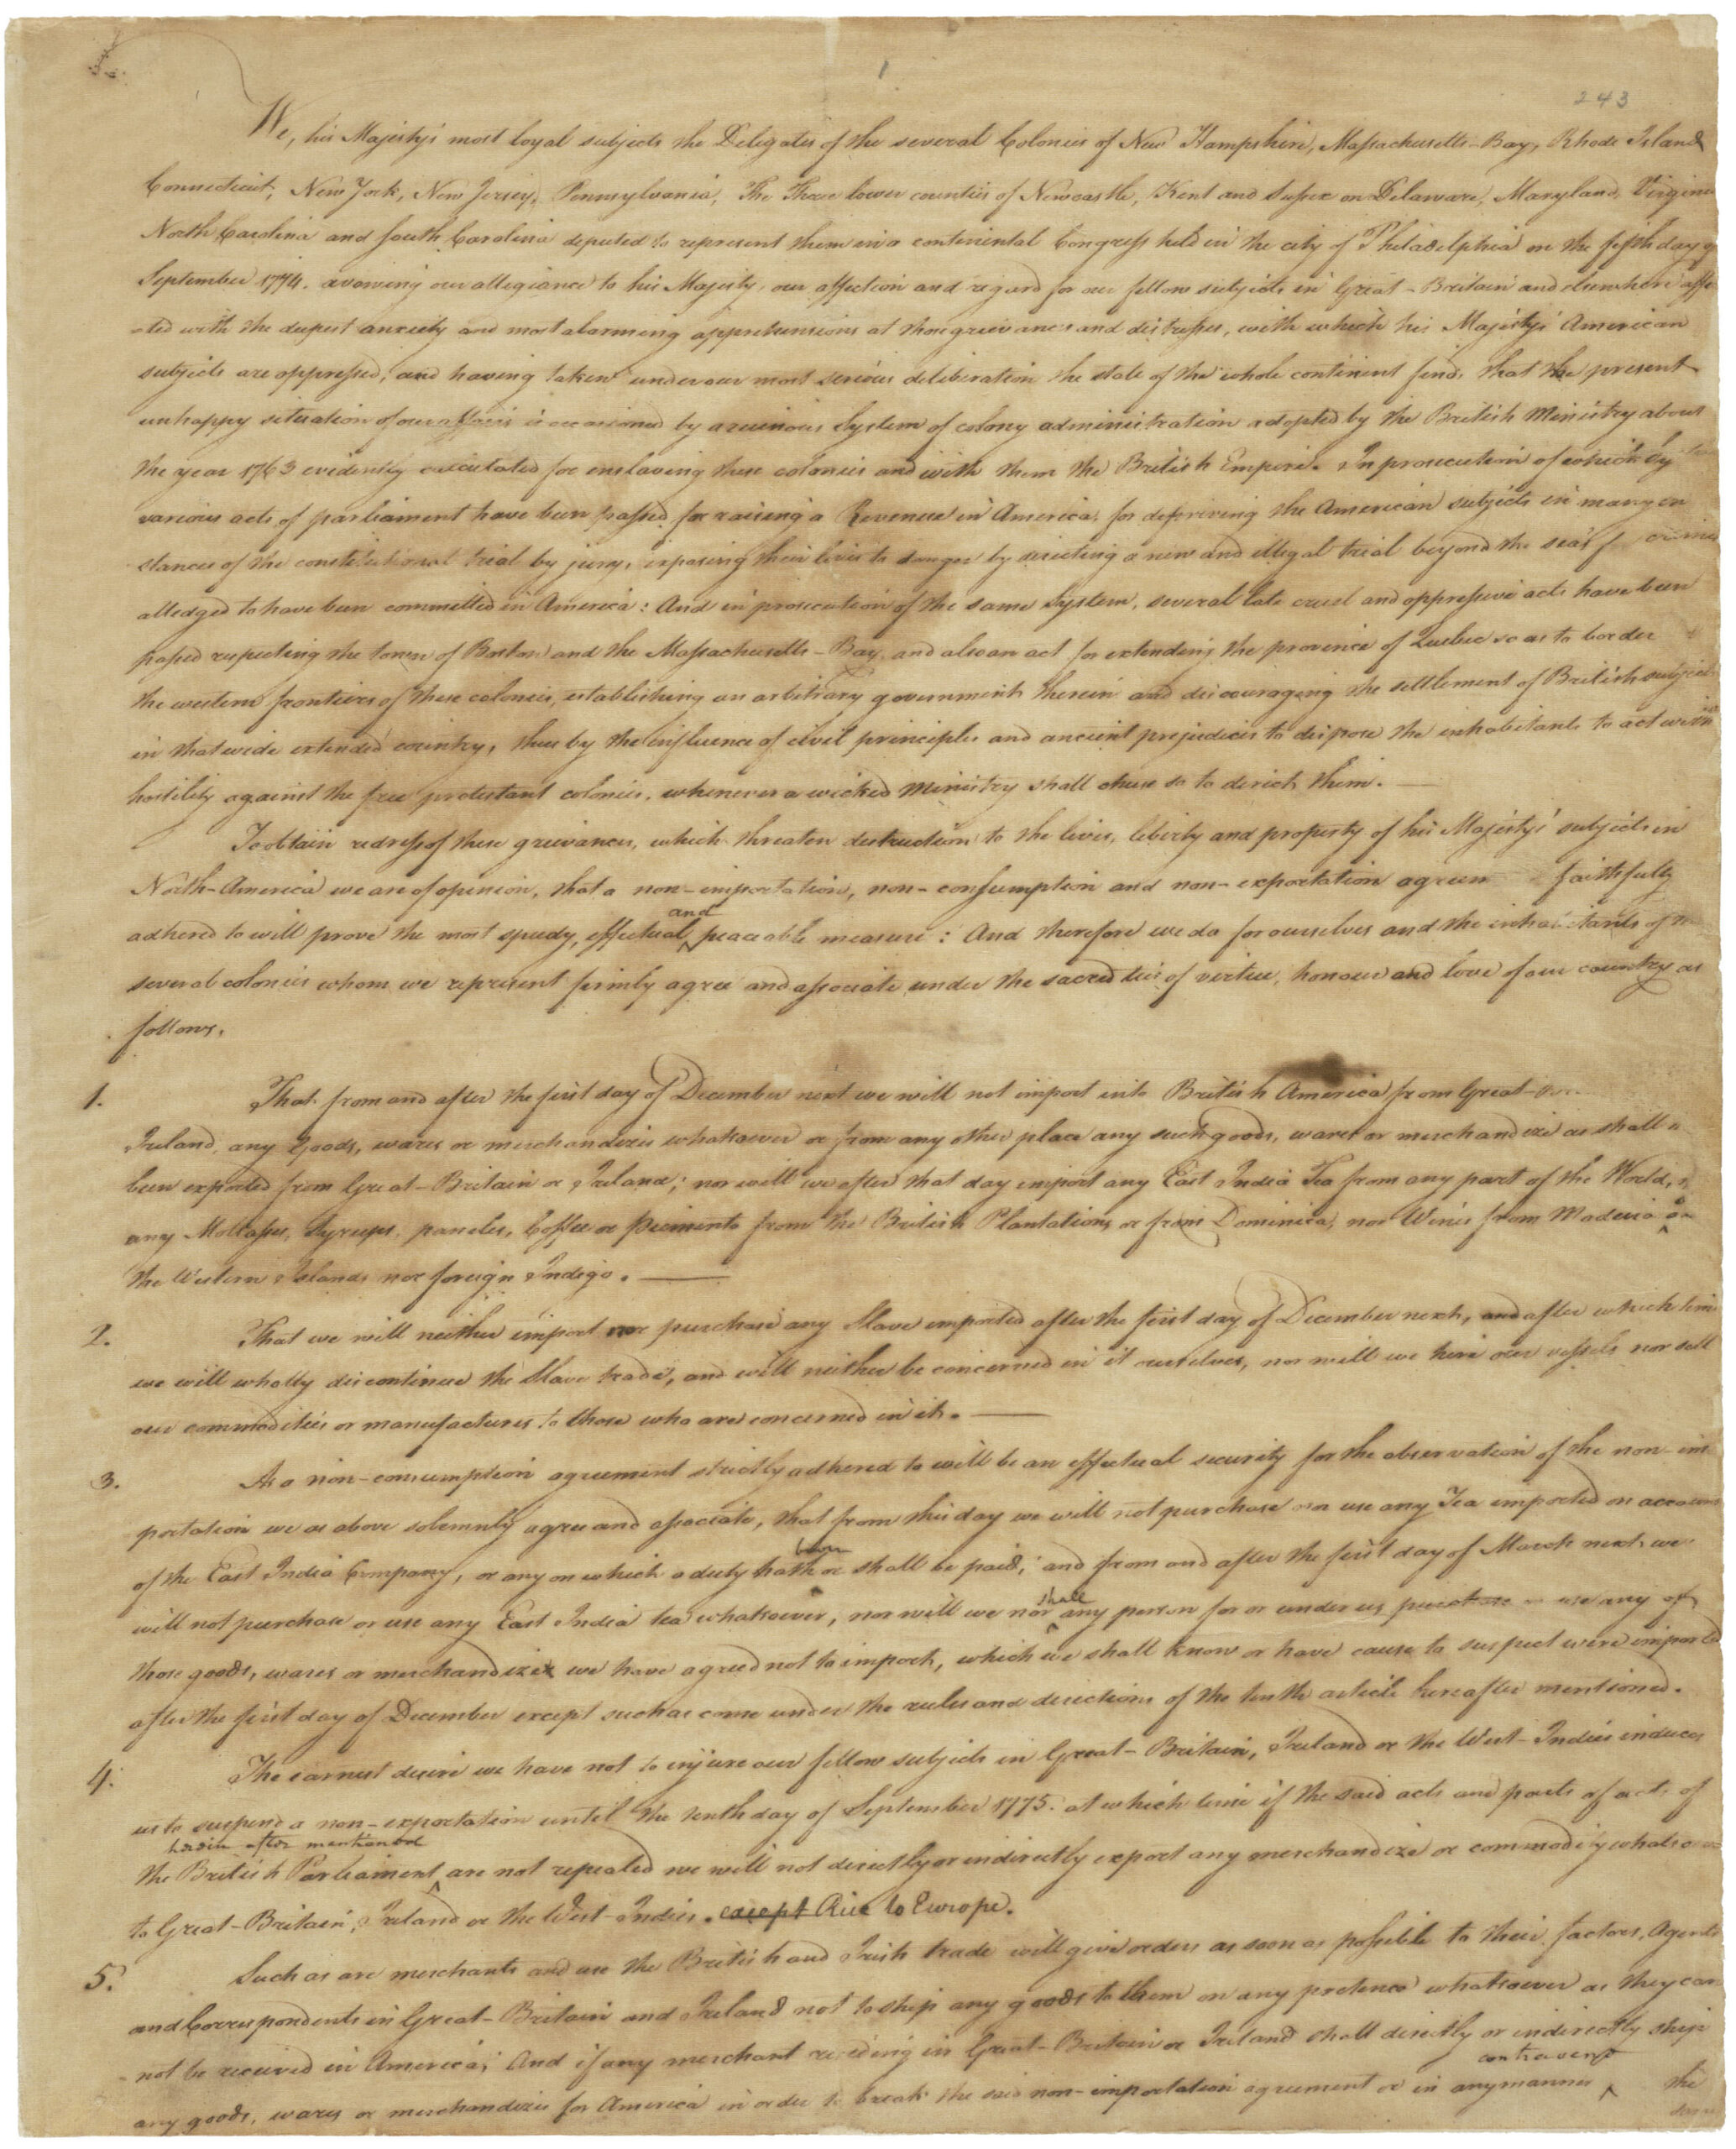 1
243
We, his Majesty's most loyal subjects the Delegates of the several Colonies of New Hampshire, Massachusetts-Bay, Rhode Island
Connecticut, New York, New Jersey, Pennsylvania, The Three lower counties of Newcastle, Kent and Sussex on Delaware, Maryland, Virginia
North Carolina and South Carolina deputed to represent them in a continental Congress held in the city of Philadelphia on the fifth day of
September 1774. avowing our allegiance to his Majesty, our affection and regard for our fellow subjects in Great-Britain and elsewhere affe
-ted with the deepest anxiety and most alarming apprehensions at those grievances and distresses, with which his Majesty's American
subjects are oppressed, and having taken under our most serious deliberation the state of the whole continent find, that the present
unhappy situation of our affairs is occasioned by a ruinous system of colony administration adopted by the British Ministry about
the year 1763 evidently calculated for enslaving these colonies and with them the British Empire. In prosecution of which
various acts of parliament have been passed for raising a Revenue in America, for depriving the American subjects in many in
stances of the constitutional trial by jury, exposing their lives to danger by directing a new and illegal trial beyond the seas for crimes
alledged to have been committed in America: And in prosecution of the same system, several late cruel and oppressive acts have been
passed respecting the town of Boston and the Massachusetts-Bay, and also an act for extending the province of Quebec so as to border
the western frontiers of these colonies, establishing an arbitrary government therein and discouraging the settlement of British subjects
in that wide extended country, thus by the influence of civil principles and ancient prejudices to dispose the inhabitants to act with
hostility against the free protestant colonies, whenever a wicked Ministry shall chuse so to direct them.
To obtain redress of these grievances, which threaten destruction to the lives, liberty and property of his Majesty's subjects in
North-America we are of opinion, that a non-importation, non-consumption and non-exportation agreem faithfully
and
adhered to will prove the most speedy, effectual peaceable measure: And therefore we do for ourselves and the inhabitants of
several colonies whom we represent firmly agree and associate under the sacred ties of virtue, honour and love of our country as
follows.
1. That from and after the first day of December next we will not import into British America from Great-
Ireland, any Goods, wares or merchandizes whatsoever or from any other place any such goods, wares or merchandize as shall
been exported from Great-Britain or Ireland; nor will we after that day import any East India Tea from any part of the World,
any Molasses, Syrups, paneles, Coffee or Piemento from the British Plantations or from Dominica, nor Wines from Madeira or
the Western Islands nor foreign Indigo.
2. That we will neither import nor purchase any Slave imported after the first day of December next, and after which time
we will wholly discontinue the Slave trade, and will neither be concerned in it ourselves, nor will we hire our vessels nor sell
our commodities or manufactures to those who are concerned in it.
3. As a non-consumption agreement strictly adhered to will be an effectual security for the observation of the non-im
portation we as above solemnly agree and associate, that from this day we will not purchase or use any Tea imported on account
been
of the East India Company, or any on which a duty hath or shall be paid; and from and after the first day of March next we
shall
will not purchase or use any East India tea whatsoever, nor will we nor any person for or under us purchase or use any of
those goods, wares or merchandizes we have agreed not to import, which we shall know or have cause to suspect were imported
after the first day of December except such as come under the rules and directions of the tenth article hereafter mentioned.
4. The earnest desire we have not to injure our fellow subjects in Great-Britain, Ireland or the West-Indies induces
us to suspend a non-exportation until the tenth day of September 1775. at which time if the said acts and parts of acts of
herein after mentioned
the British Parliament are not repealed we will not directly or indirectly export any merchandize or commodity whatsoever
to Great-Britain, Ireland or the West-Indies. except Rice to Europe.
5. Such as are merchants and use the British and Irish trade will give orders as soon as possible to their factors, Agents
and Correspondents in Great-Britain and Ireland not to ship any goods to them on any pretence whatsoever as they can
not be received in America; And if any merchant residing in Great-Britain or Ireland shall directly or indirectly ship
contravene
any goods, wares or merchandizes for America in order to break the said non-importation agreement or in any manner the
same